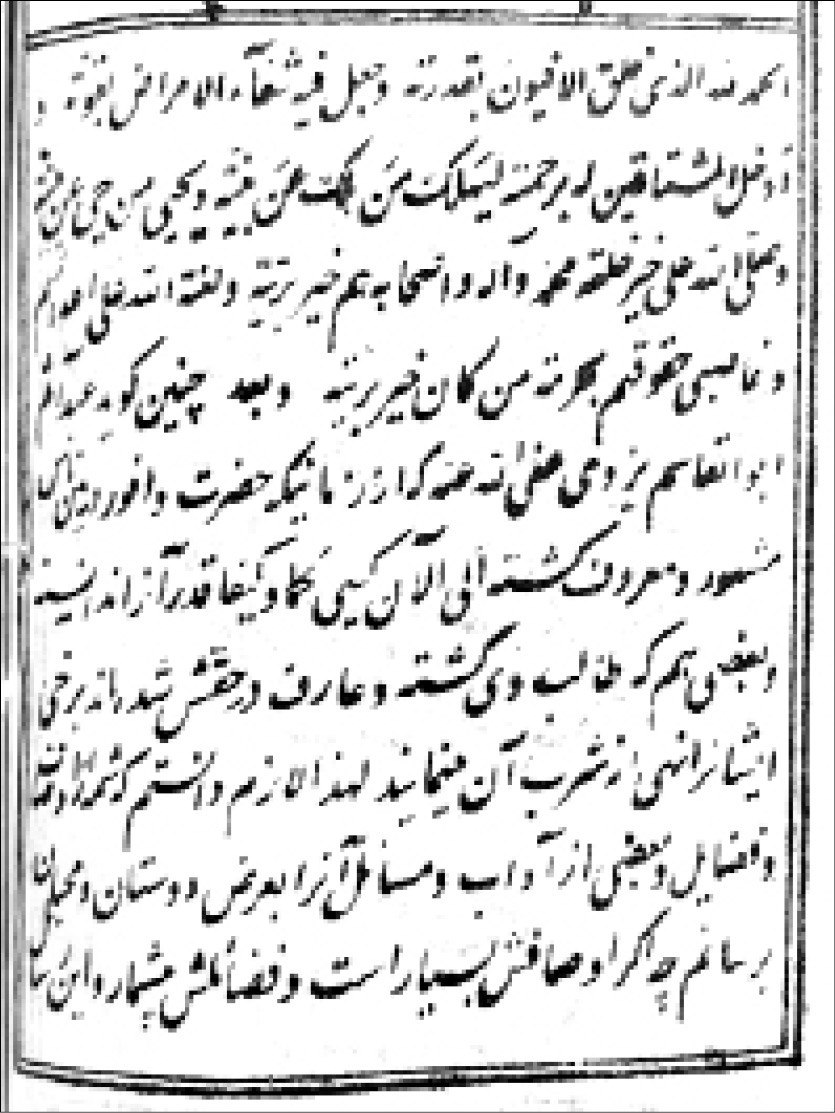 الحمد لله الذی خلق الافیون بقدرته وجعل فیه شفآء الامراض بقوته و
أدخل المشتاقین له برحمته لیهلک مَن هلک عَن بینه ویحیی من حی عن بینه
وصلی الله علی خیر خلقه محمد وآله واصحابه هم خیر بریته ولعنة الله علی اعدائهم
وغاصبی حقوقهم بحرمة من کان خیر بریته وبعد چنین گوید
ابوالقاسم یزدی عفی الله عنه که از زمانیکه حضرت وافور
مشهور ومعروف گشته الی الآن کسی کما وکیفا قدر آنرا ندانسته
وبعضی هم که طالب وی گشته وعارف درحقش شده‌اند برخی
ایشانرا نهی از شرب آن مینمایند لهذا لازم دانستم که
وفضایل وبعضی از آداب ومسائل آنرا بعرض دوستان ومحبان
برسانم چه اگر اوصافش بسیار است وفضائلش بیشمار واین